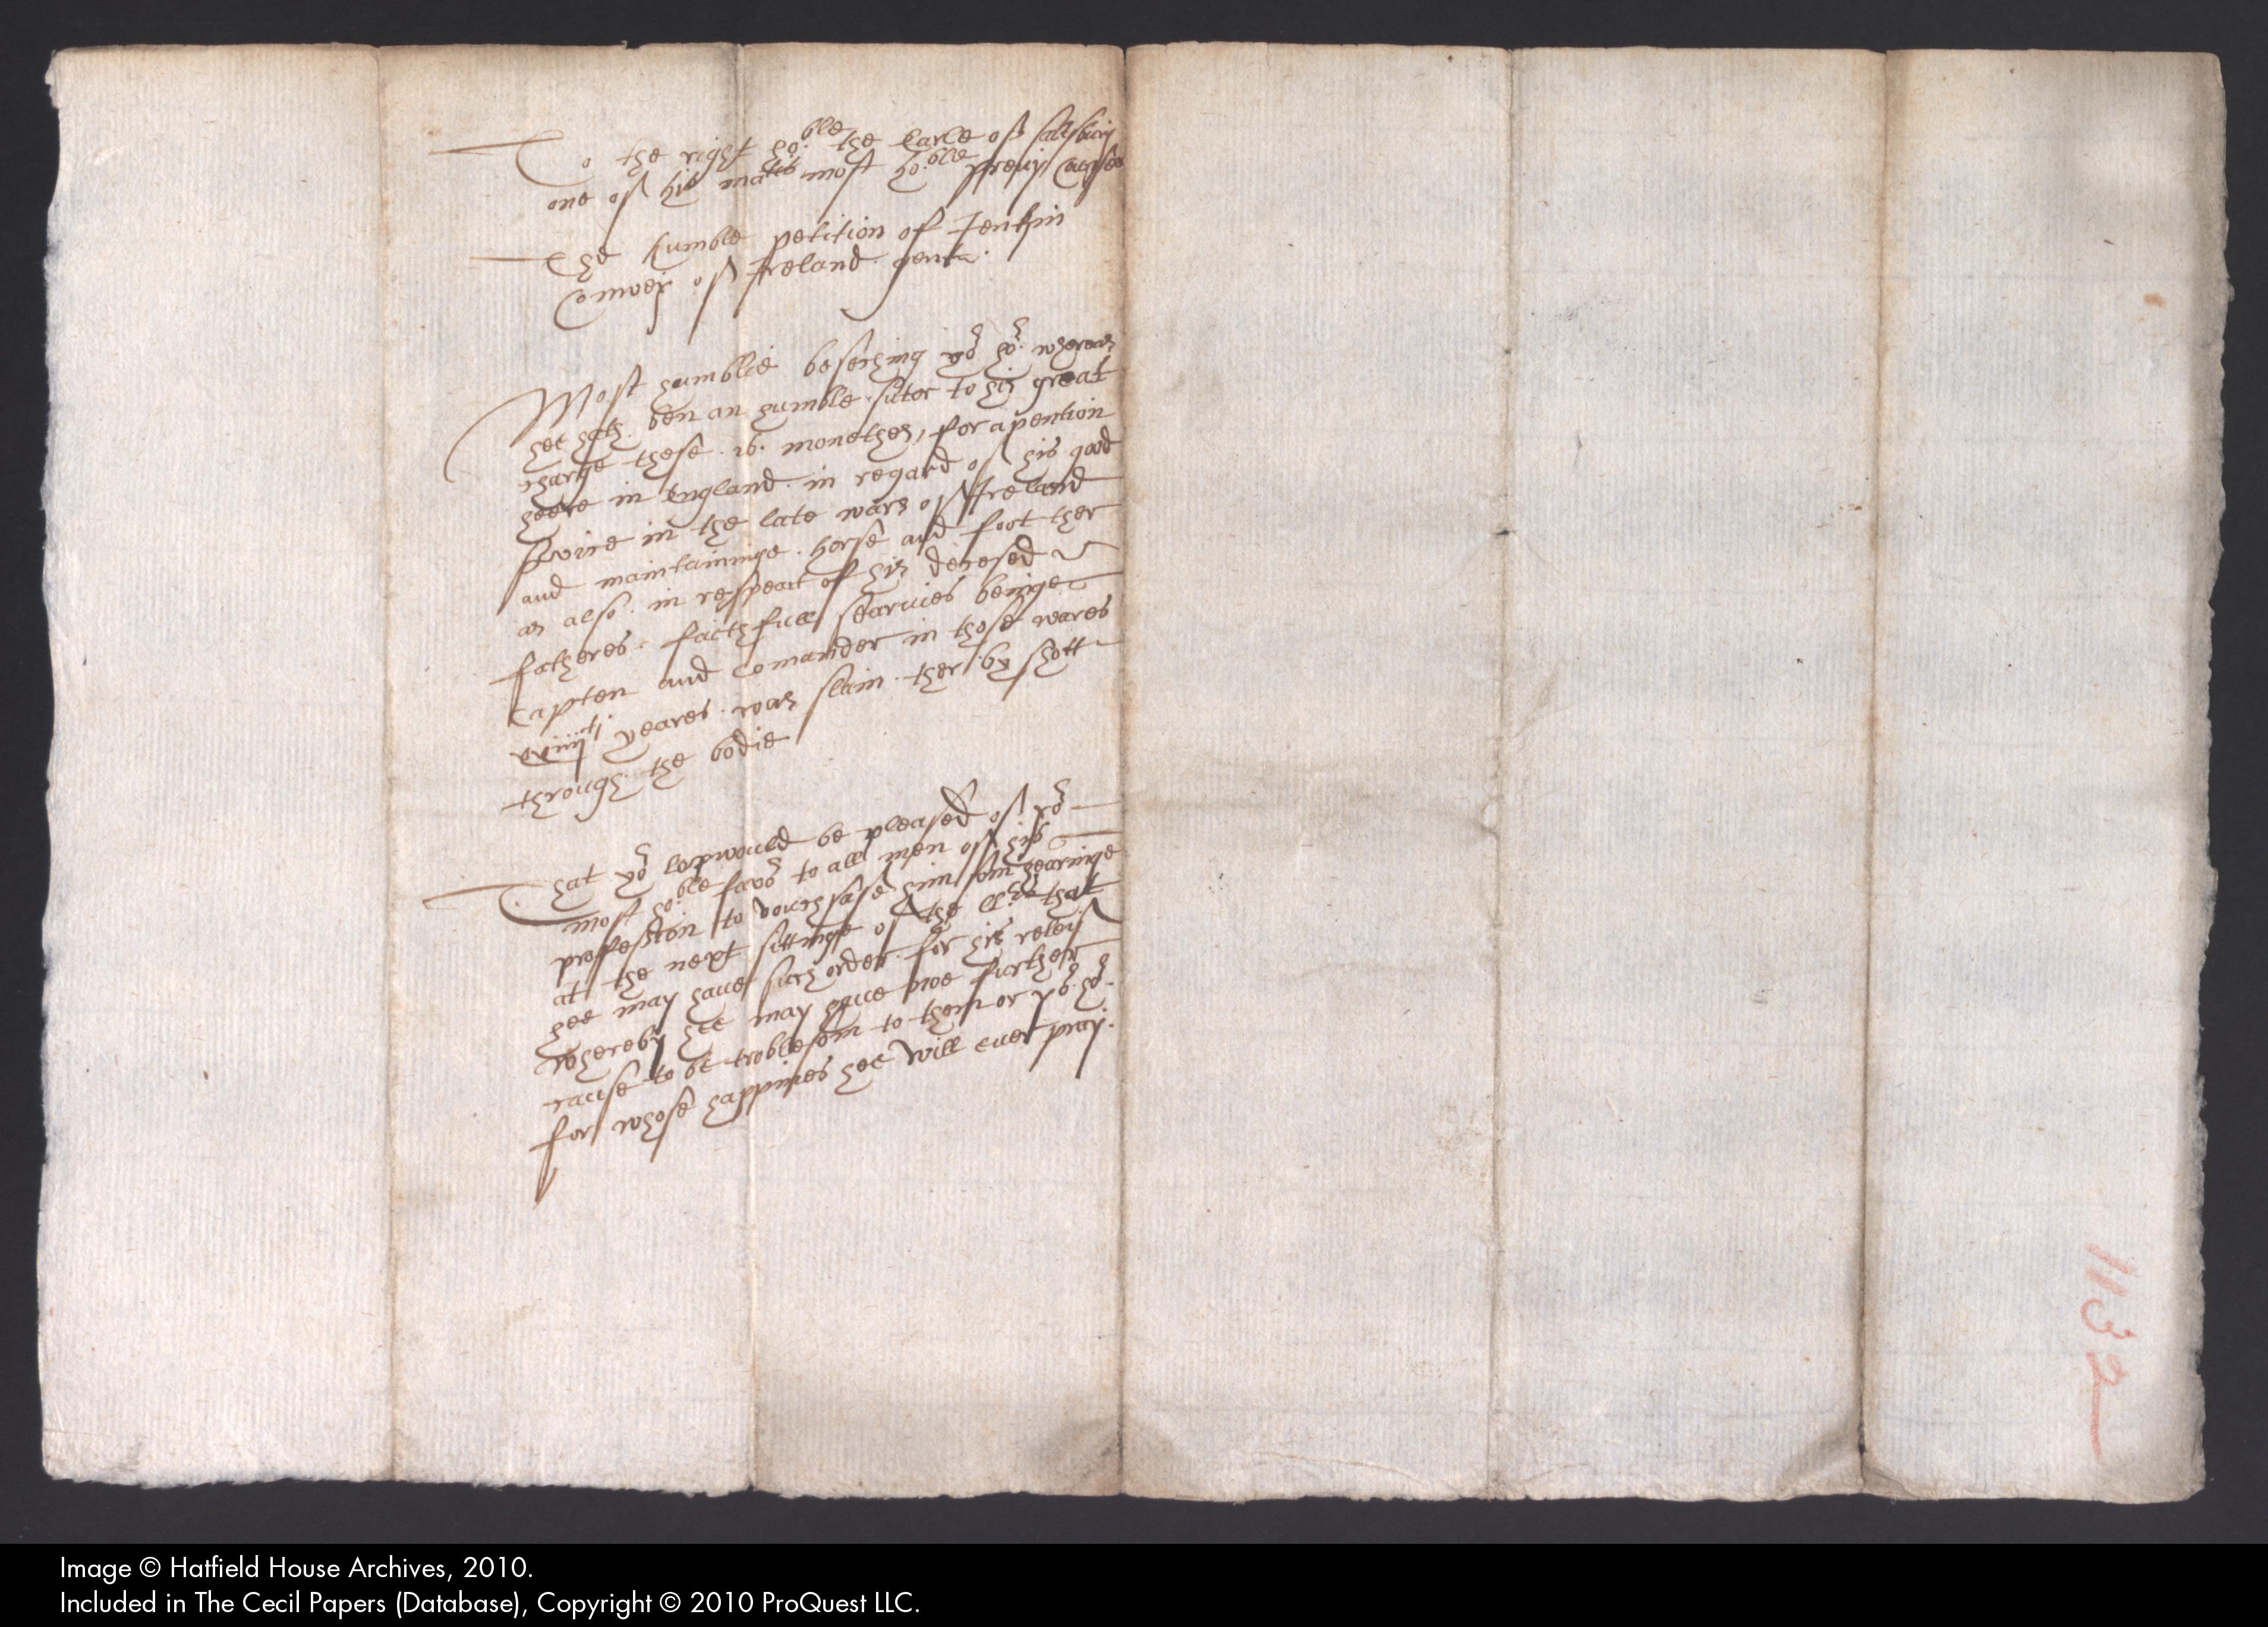 To the right ho:ble the Earle of salisbury
one of his matis most ho:ble preuy Counsel
The humble petition of Jenkin
Conwey of Ireland gent.
Most humblie beseching yor ho:r wheras
hee hath ben an humble sutor to his great
charge these 16. monethes, for a pention
heere in England in regard of his good
service in the late wars of Ireland
and maintaininge horse and foot ther
as also in respeact of his decesed
fatheres faithfull searuies beinge
Capten and Comander in those wares
xxiiijti yeares was slain ther by shott
through the bodie
That yor lo:p would be pleased of yor
most ho:ble favor to all men of his
profession to vouchsafe him som hearinge
at the next sittinge of the ll:rds that
hee may haue such order for his releif
whereby hee may haue noe further
cause to be troblesom to them or yor ho:r
for whose happines hee will euer pray.
1132
Image © Hatfield House Archives, 2010.
Included in The Cecil Papers (Database), Copyright © 2010 ProQuest LLC.